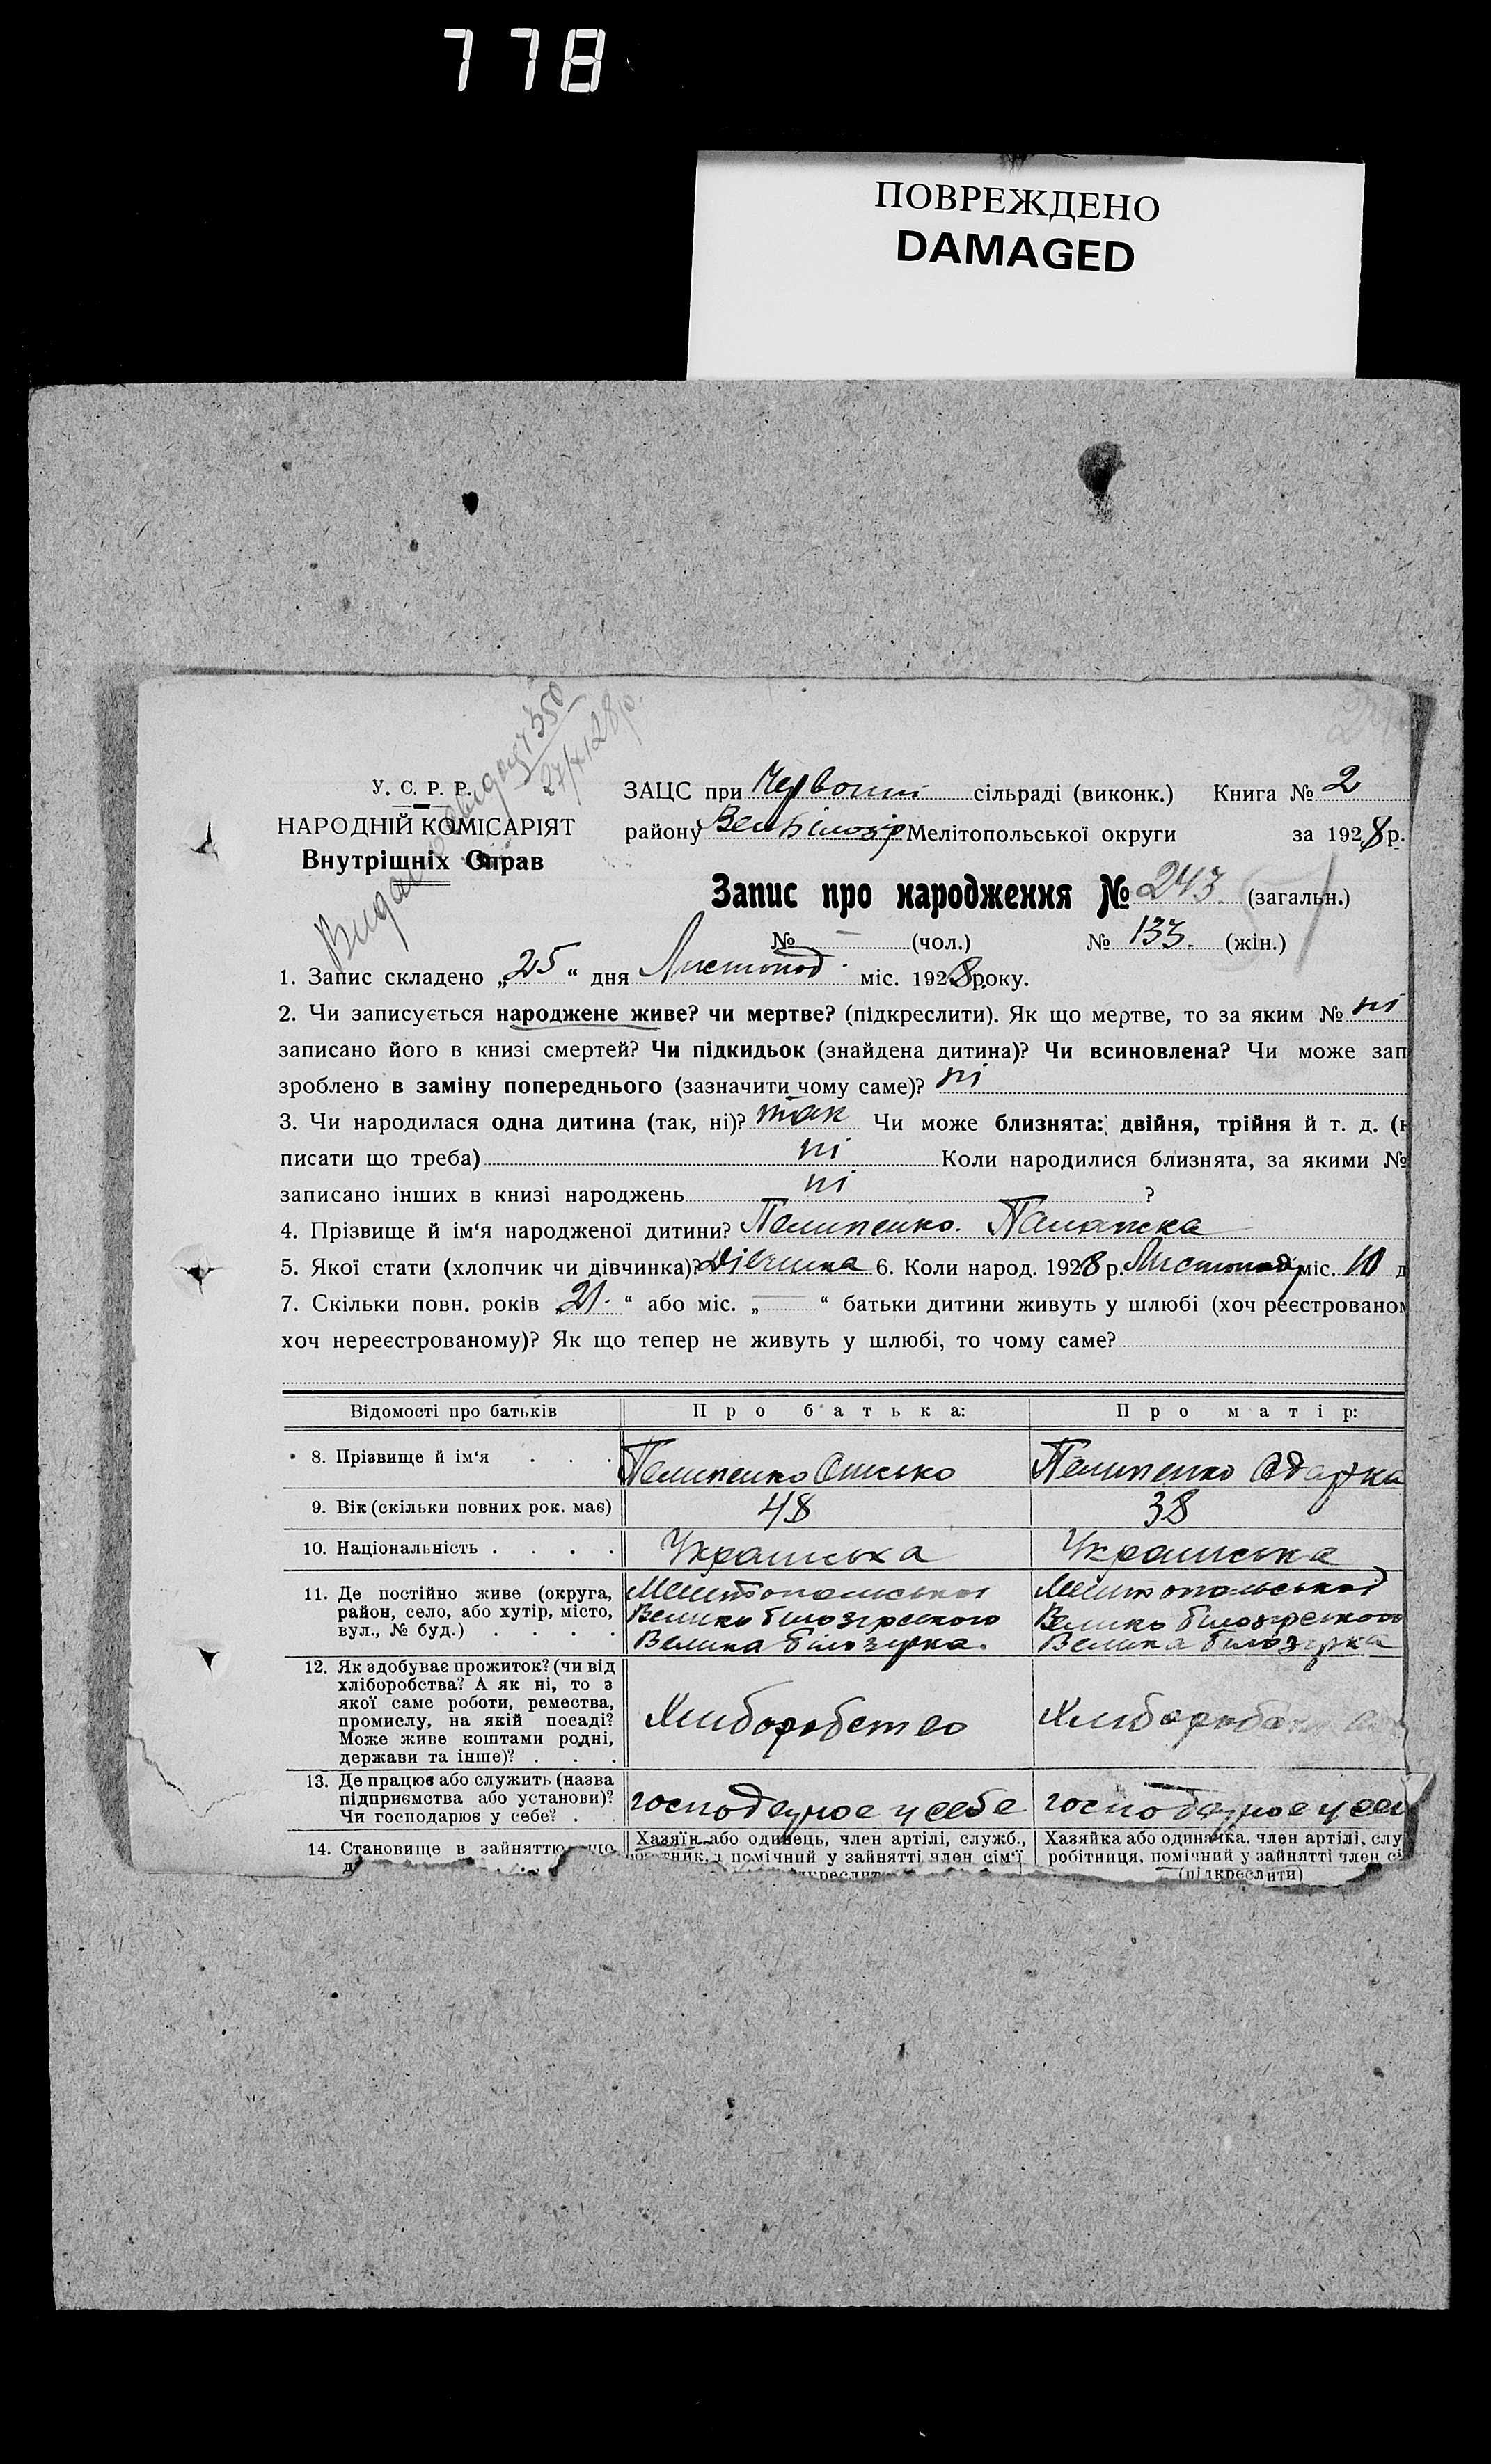 778
ПОВРЕЖДЕНО
DAMAGED
У. С. Р. Р.
НАРОДНІЙ КОМІСАРІЯТ
Внутрішніх Справ
350
27/XI 28р.
ЗАЦС при Червоній сільраді (виконк.) Книга № 2
району Вел Білозір Мелітопольської округи за 1928 р.
Запис про народження № 243 (загальн.)
№ — (чол.) № 133. (жін.)
1. Запис складено „25“ дня Листопод міс. 1928 року.
2. Чи записується народжене живе? чи мертве? (підкреслити). Як що мертве, то за яким № ні
записано його в книзі смертей? Чи підкидьок (знайдена дитина)? Чи всиновлена? Чи може зап
зроблено в заміну попереднього (зазначити чому саме)? ні
3. Чи народилася одна дитина (так, ні)? так Чи може близнята: двійня, трійня й т. д. (н
писати що треба) ні Коли народилися близнята, за якими №
записано інших в книзі народжень ні ?
4. Прізвище й ім'я народженої дитини? Пелипенко. Палажка
5. Якої стати (хлопчик чи дівчинка)? Дівчинка 6. Коли народ. 1928 р. Листопад міс. 10 д
7. Скільки повн. років 21. “ або міс. „ — “ батьки дитини живуть у шлюбі (хоч реєстрованом
хоч нереєстрованому)? Як що тепер не живуть у шлюбі, то чому саме?
Відомості про батьків Про батька: Про матір:
8. Прізвище й ім'я . . . Пелипенко Онисько Пелипенко Одарка
9. Вік (скільки повних рок. має) 48 38
10. Національність . . . . Українська Українська
11. Де постійно живе (округа, Мелітопольської Мелітопольської
район, село, або хутір, місто, Велико білозірського Велико білозірського
вул., № буд.) . . . . Велика білозірка. Велика білозірка
12. Як здобуває прожиток? (чи від
хліборобства? А як ні, то з
якої саме роботи, ремества,
промислу, на якій посаді?
Може живе коштами родні,
держави та інше)? . . .
Хліборобство
13. Де працює або служить (назва
підприємства або установи)?
Чи господарює у себе? .
господарює у себе господарює у себ
14. Становище в зайняттю що Хазяїн або одинець, член артілі, служб., Хазяйка або одиначка, член артілі, слу
помічний у зайнятті член сім'ї робітниця, помічний у зайнятті член сі
(підкреслити)